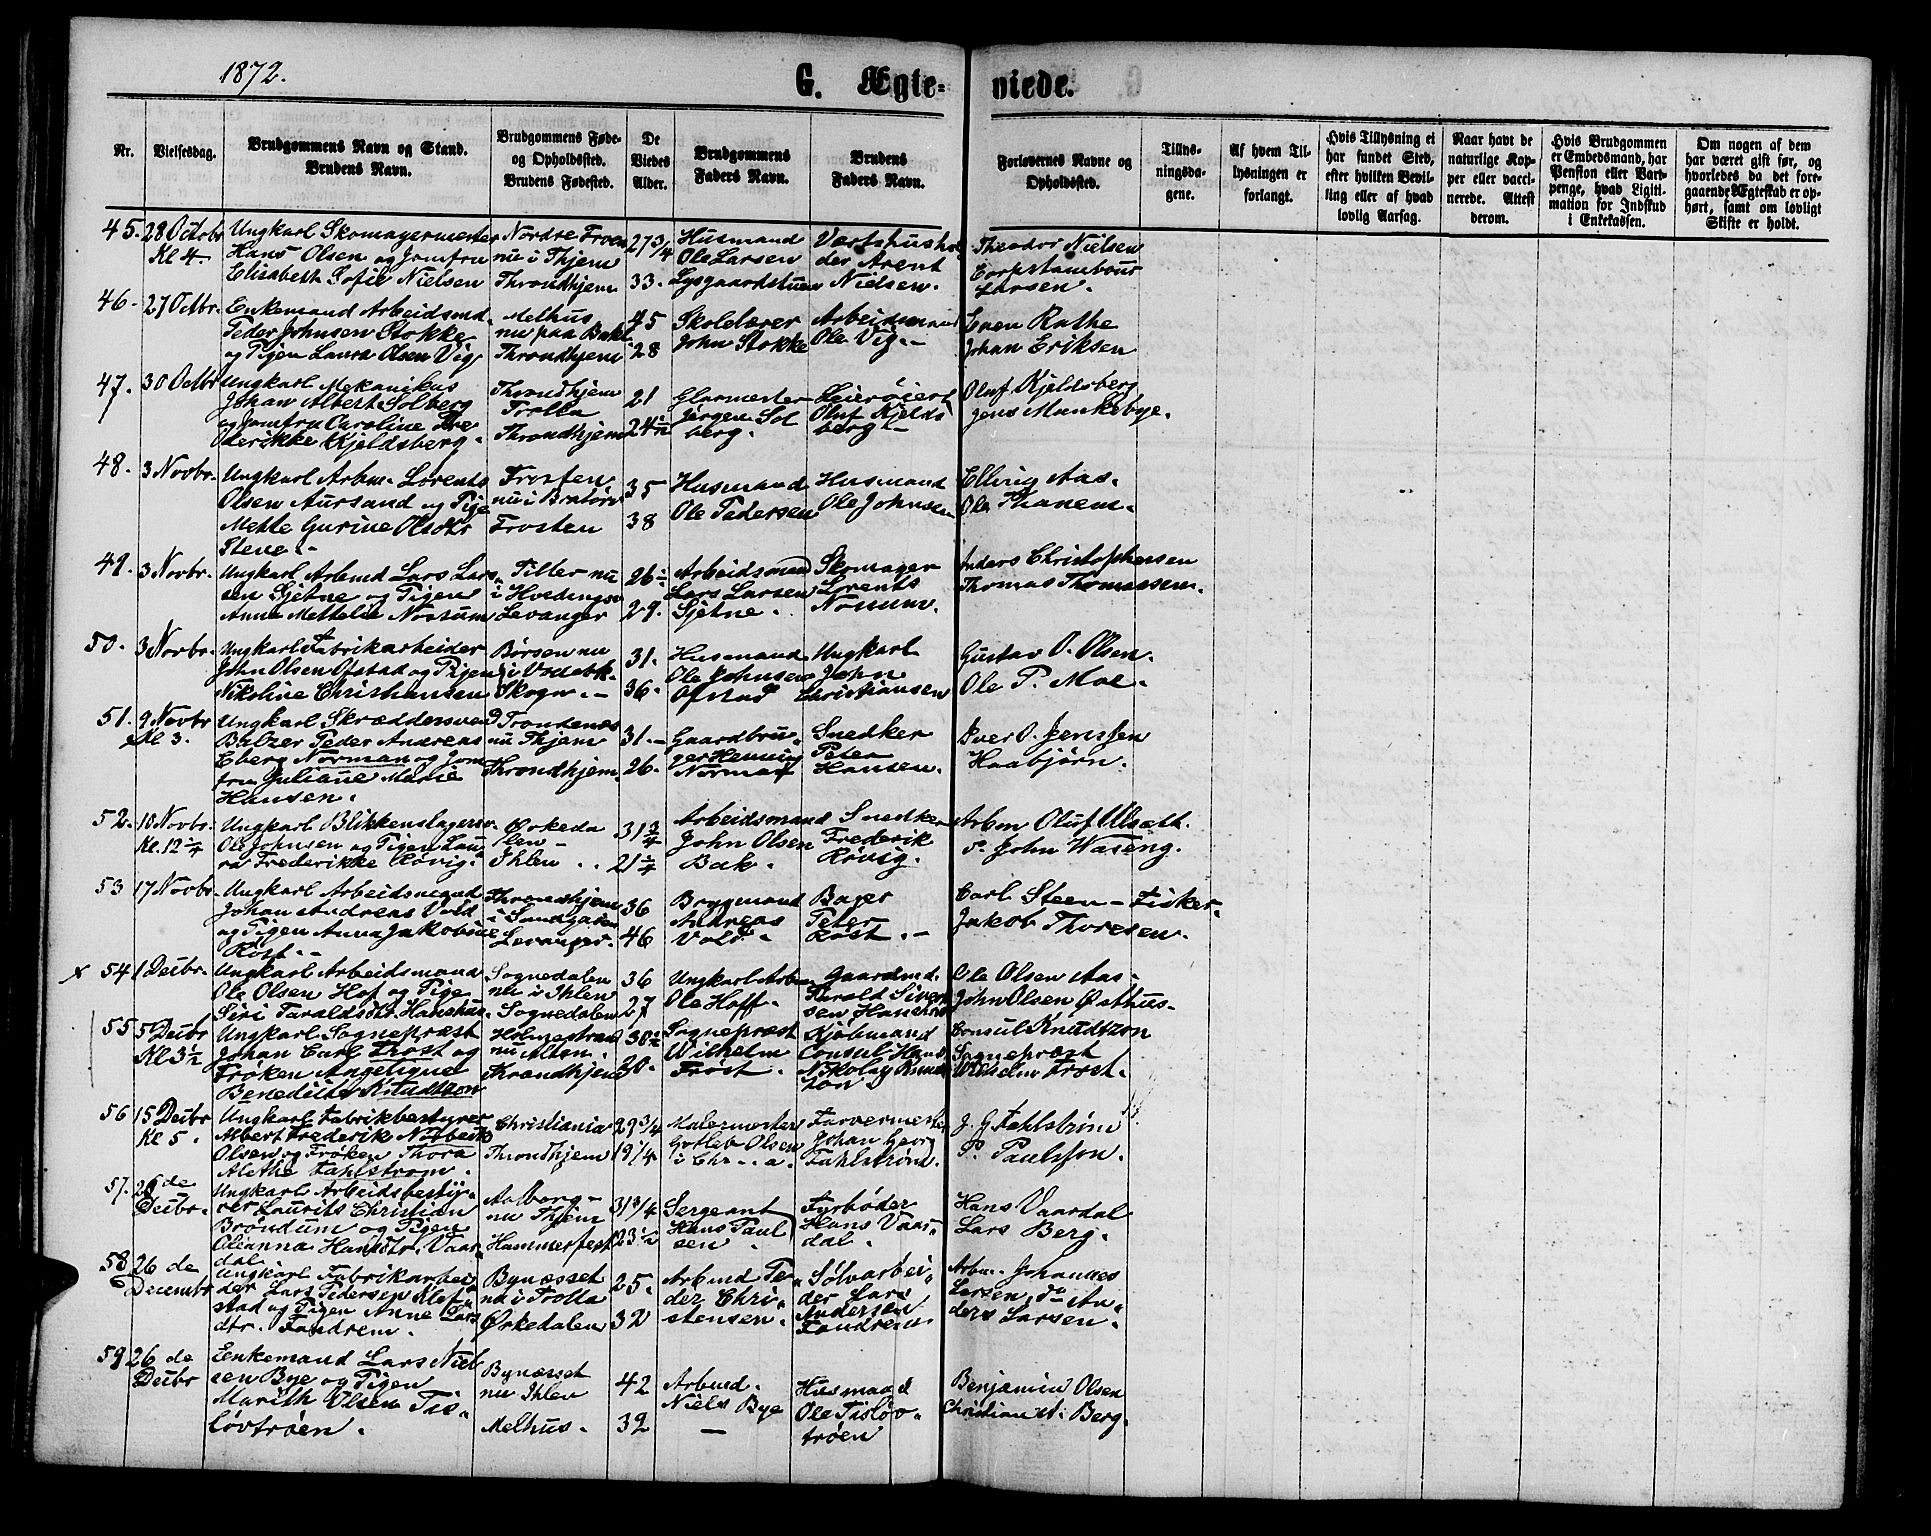 1872.
G. Ægte=
viede.
Nr.
Vielsesdag.
Brudgommens Navn og Stand.
Brudens Navn.
Brudgommens Føde-
og Opholdssted.
Brudens Fødested.
De
Viedes
Alder.
Brudgommens
Faders Navn.
Brudens
Faders Navn.
Forlovernes Navne og
Opholdssted.
Tillys-
ningsda-
gene.
Af hvem Til-
lysningen er
forlangt.
Hvis Tillysning ei
har fundet Sted,
efter hvilken Bevil-
ling eller af hvad
lovlig Aarsag.
Naar havt de
naturlige Kop-
per eller vacci-
nerede. Attest
derom.
Hvis Brudgommen
er Embedsmand, har
Pension eller Vart-
penge, hvad Ligiti-
mation for Indskud
i Enkekassen.
Om nogen af dem
har været gift før, og
hvorledes da det fore-
gaaende Ægteskab er op-
hørt, samt om lovligt
Skifte er holdt.
45. 28 Octobr
Kl 4.
Ungkarl Skomagermester
Hans Olsen og Jomfru
Elisabeth Sofie Nielsen
Nordre Froen
nu i Thjem
Throndhjem
27 3/4
33.
Husmand
Ole Larsen
Lysgaardstuen
Værtshushol
der Arent
Nielsen.
Theodor Nielsen
Corpstambour
Larsen.
46. 27 Octbr.
Enkemand Arbeidsmd.
Peder Johnsen Stokke
og Pigen Laura Olsen Vig
Melhus
nu paa Bakl.
Throndhjem
45
28
Skolelærer
John Stokke
Arbeidsmand
Ole Vig.
Even Rathe
Johan Eriksen
47. 30 Octbr
Ungkarl Mekanikus
Johan Albert Solberg
og Jomfru Caroline Fre
derikke Kjeldsberg.
Throndhjem
Trolla
Throndhjem
21
24 1/2
Glarmester
Jørgen Sol
berg.
Leierøier
Oluf Kjelds
berg
Oluf Kjeldsberg
Jens Munkebye.
48. 3 Novbr.
Ungkarl Arbm. Lorents
Olsen Aursand og Pige
Mette Gurine Olsdtr
Stene.
Frosten
nu i Bratøren
Frosten
35
38
Husmand
Ole Pedersen
Husmand
Ole Johnsen
Elling Aas.
Ole Thanem.
49. 3 Novbr.
Ungkarl Arbmd Lars Lar
sen Sjetne og Pigen
Anna Mettelie Nossum
Tiller nu
i Hvedingsv
Levanger
26 1/2
29.
Arbeidsmand
Lars Larsen
Sjetne.
Skomager
Lorents
Nossum.
Anders Christophersen
Thomas Thomassen.
50. 3 Novbr.
Ungkarl Fabrikarbeider
John Olsen Ofstad og Pigen
Nikoline Christiansen
Børsen nu
Skogn.
31.
36.
Husmand
Ole Johnsen
Ofstad
Ungkarl
John
Christiansen
Gustav O. Olsen.
Ole P. Moe.
51. 9 Novbr
Kl 3.
Ungkarl Skræddersvend
Balzer Peder Andreas
Eberg Norman og Jom
fru Juliane Marie
Hansen.
Trondenæs
nu Thjem
Throndhjem.
31.
26.
Gaardbru
ger Henning
Norman
Snedker
Peter
Hansen.
Iver O. Jenssen
Haabjørn.
52. 10 Novbr.
Kl. 12 1/4
Ungkarl Blikkenslagersv.
Ole Johnsen og Pigen Lau
ra Frederikke Røvig.
Ørkeda
len
Ihlen
31 3/4
21 1/4
Arbeidsmand
John Olsen
Bak.
Snedker
Frederik
Røvig.
Arbm Oluf Ulsæth.
John Waseng.
53 17 Novbr.
Ungkarl Arbeidsmand
Johan Andreas Vold
og Pigen Anna Jakobine
Rost.
Throndhjem
i Sandgaden
Levanger.
36
46
Brygmand
Andreas
Vold.
Bager
Peter
Rost.
Carl Steen - Fisker.
Jakob Thoresen.
x 54 1 Decbr.
Ungkarl Arbeidsmand
Ole Olsen Hof og Pige
Siri Taraldsdtr. Hanshus.
Sognedalen
nu i Ihlen
Sognedalen
36
27
Ungkarl Arbm
Ole Hoff.
Gaardmd.
Tarald Sivert
sen Hanshus
Ole Olsen Aas
John Olsen Østhus
55 5 Decbr
Kl 3 1/2
Ungkarl Sogneprest
Johan Carl Frost og
Frøken Angelique
Benedicte Knudtzon
Holmestrand
nu Alten.
Throndhjem
30 1/2
20.
Sogneprest
Wilhelm
Frost.
Kjøbmand
Consul Hans
Nikolay Knud
tzon
Consul Knudtzon
Sogneprest
Wilhelm Frost.
56 15 Decbr
Kl 5.
Ungkarl Fabrikbestyrer
Albert Frederik Notbeck
Olsen og Frøken Thora
Alethe Fahlstrøm.
Christiania
Throndhjem
29 3/4
19 1/4
Malermester
Gotleb Olsen
i Chr...a.
Farvermester
Johan Georg
Fahlstrøm.
J. G. Fahlstrøm
P. Paulsson.
57. 26 de
Decbr.
Ungkarl Arbeidsbesty
rer Laurits Christian
Brøndum og Pigen
Oleanna Hansdtr. Vaar
dal.
Aalborg
nu Thjem
Hammerfest
31 3/4
23 1/2
Sergeant
Hans Paul
sen
Fyrbøder
Hans Vaar
dal.
Hans Vaardal
Lars Berg.
58 26 de
Decembr
Ungkarl Fabrikarbei
der Lars Pedersen Klef
stad og Pigen Anne Lars
dtr. Fandrem.
Bynæsset
nu i Trolla
Ørkedalen
25.
32
Arbmd Pe
der Chri
stensen.
Sølvarbei
der Lars
Andersen
Fandrem.
Arbm. Johannes
Larsen, do An
ders Larsen.
59 26 de
Decbr
Enkemand Lars Niel
sen Bye og Pigen
Marith Olsen Tis
løvtrøen.
Bynæsset
nu Ihlen
Melhus.
42
32
Arbmd.
Niels Bye
Husmand
Ole Tisløv
trøen
Benjamin Olsen
Christian N. Berg.